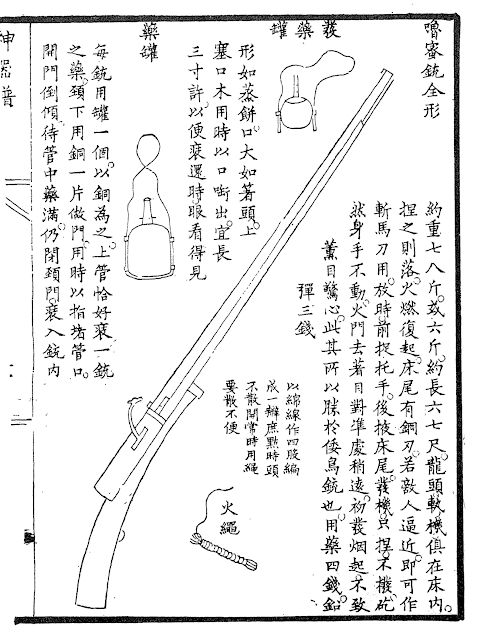 嚕密銃全形
約重七八斤。或六斤。約長六七尺。龍頭軌機俱在床内。
捏之則落。火燃復起。床尾有鋼刀。若敵人逼近。即可作
斬馬刀用。放時前捉托手。後掖床尾。發機只捏。不撥。砣
然身手不動。火門去著目對準處稍遠。初發烟起。不致
薰目驚心。此其所以勝於倭鳥銃也。用藥四錢。鉛
彈三錢
發藥罐
形如蒸餅。口大如箸頭。上
塞口木。用時以口啣出。宜長
三寸許。以便裝還時眼看得見
以綿線作四股編
成一辮庶點時頭
不散開常時用繩
要散不便
火繩
藥罐
每銃用罐一個。以銅為之。上管恰好裝一銃
之藥。頸下用銅一片做門。用時以指堵管口。
開門倒傾。待管中藥滿。仍閉頸門。裝入銃内
神器譜